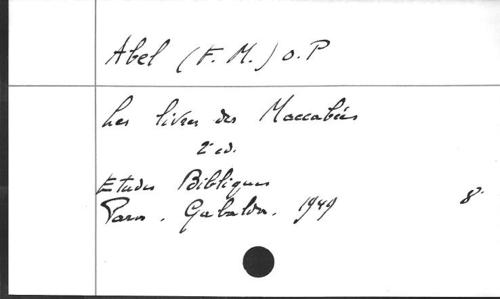 Abel (F. M.) O. P
Les livres des Maccabées
2e ed.
Etudes Bibliques
Paris. Gabalda. 1949 8°